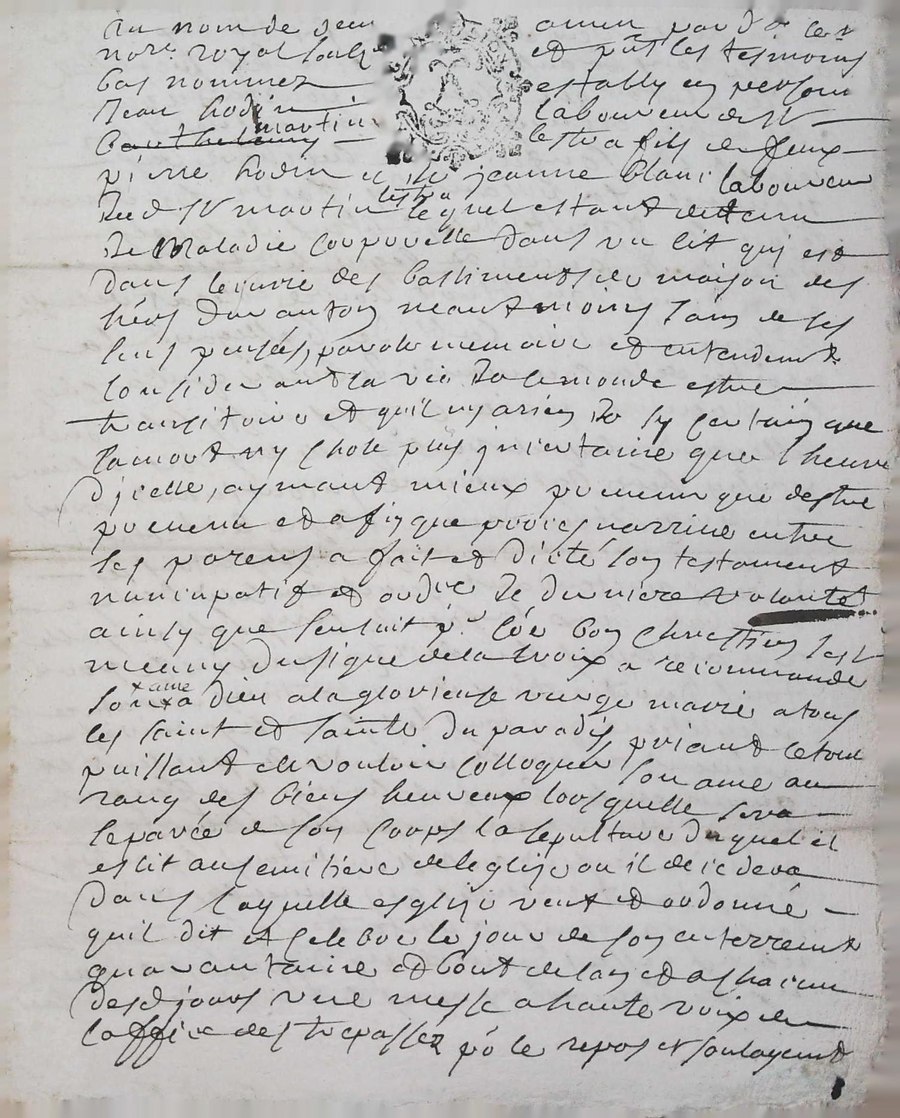 Au nom de dieu amen par dt le
nore royal soubz et pnt les tesmoins
bas nommez estably en persone
Jean hodin laboureur de St
Barthelemy martin lestra fils de feux
pierre hodin et de jeanne blanc laboureur
dud St martin lestra lequel estant detenu
de Maladie corporelle dans un lit qui est
dans des bastiments et maison des
hers neantmoins sain de ses
sens pensées, parole memoire et entendement
Considerant la vie de ce monde estre
transitoire et quil ny a rien de sy certain que
la mort ny chose plus jncertaine que l heure
djcelle, aymant mieux prevenir que destre
prevenu et afin que proces narrive entre
ses parens a fait et dicté son testament
nuncupatif et ordre de derniere volonté
ainsy que sensuit pr coe bon chrestien sest
meuny du signe de la croix a recommandé
son ame a dieu a la glorieuse vierge marie a tous
les saint et sainte du paradis priant le tout
puissant de vouloir colloquer son ame au
rang des biens heureux lorsquelle sera
separée de son corps la sepulture duquel il
eslit au semitiere de leglise ou il decedera
dans laquelle esglise veut et ordonne
quil dit et celebre le jour de son enterrement
quarantaine et bout de lan et a chacun
desd jours une messe a haute voix et
loffice des trepassez po le repos et soulagement